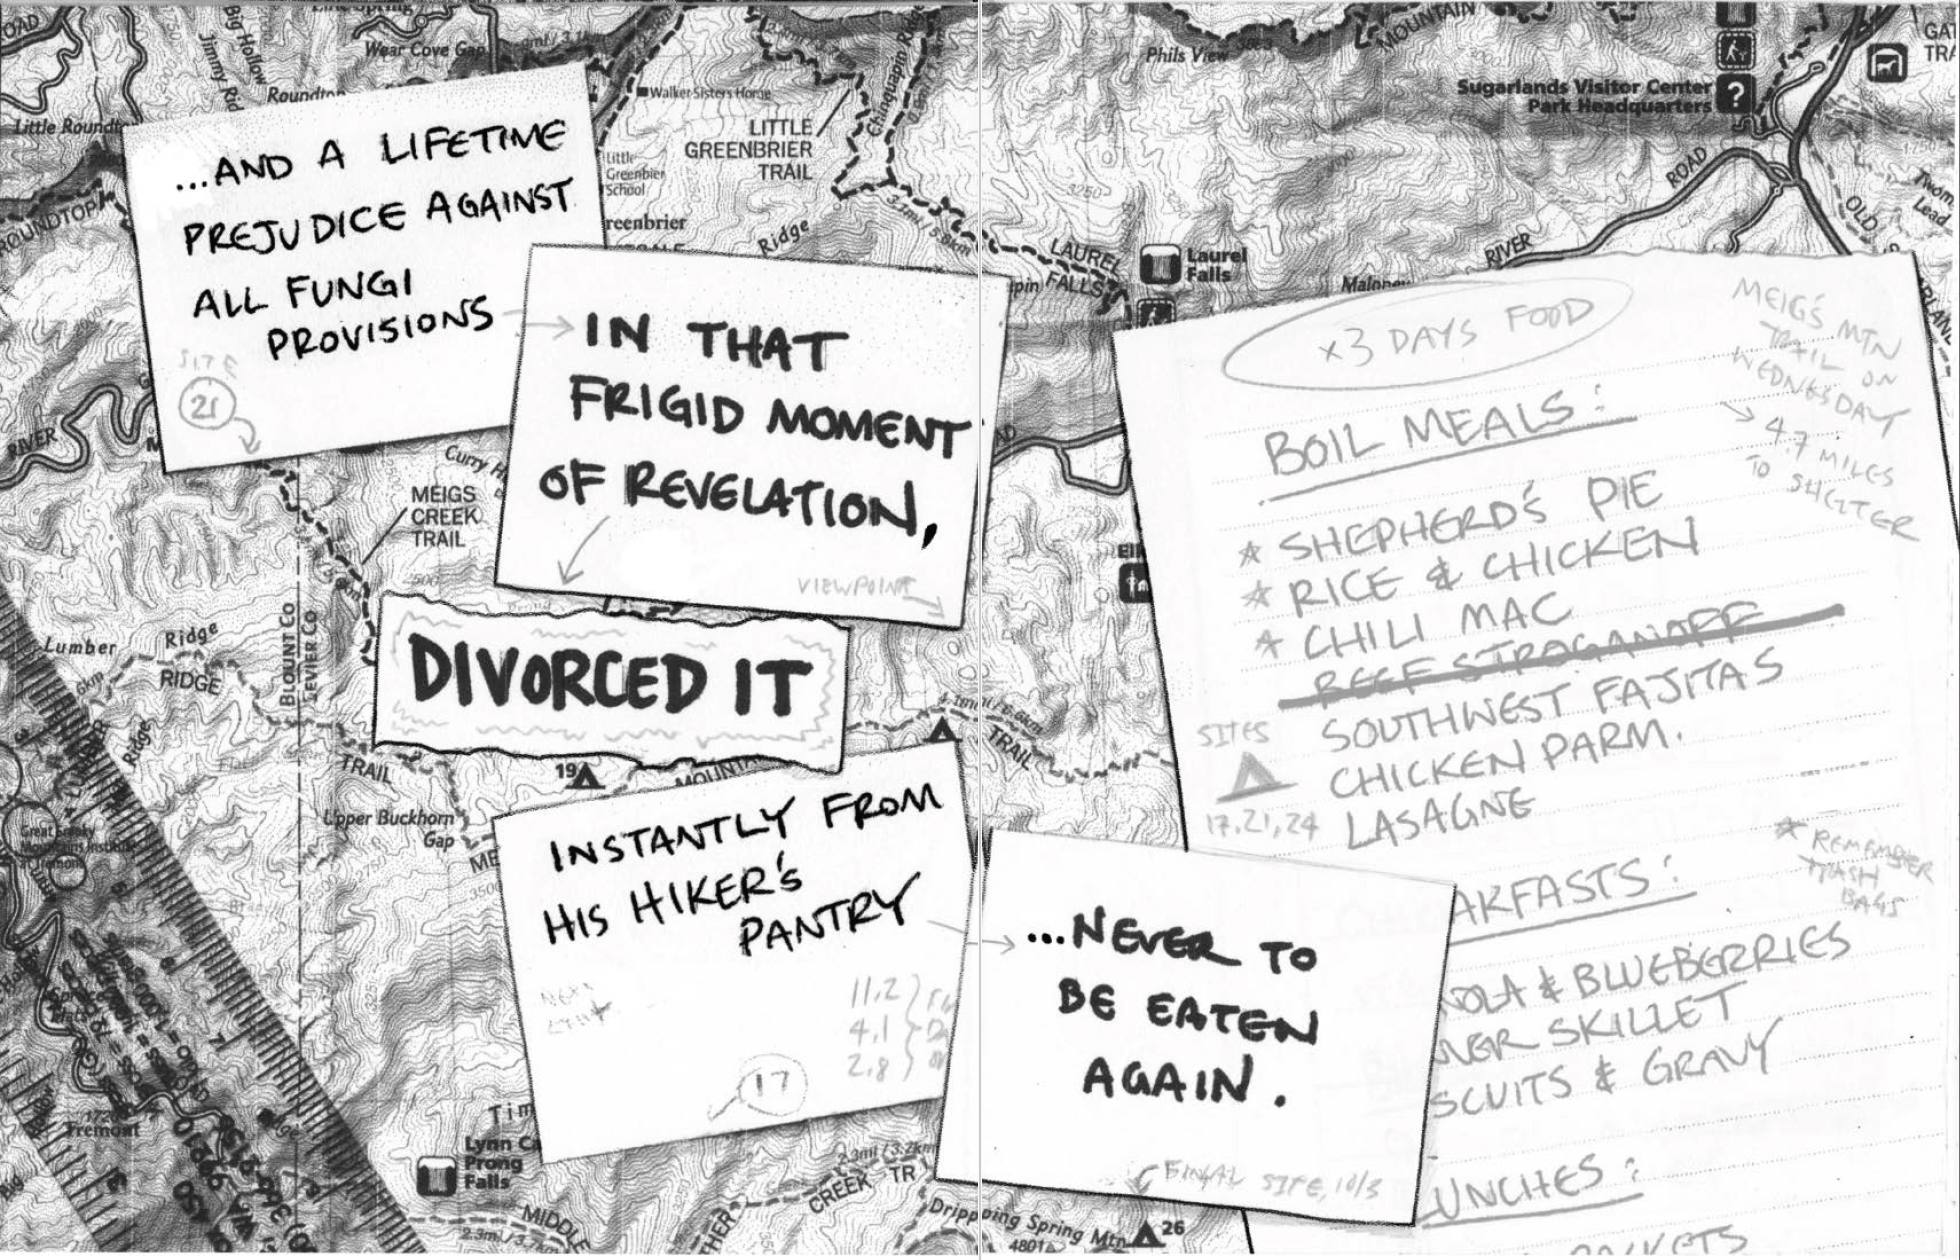 ...AND A LIFETIME
PREJUDICE AGAINST
ALL FUNGI
PROVISIONS
SITE
21
IN THAT
FRIGID MOMENT
OF REVELATION,
VIEWPOINT
DIVORCED IT
INSTANTLY FROM
HIS HIKER'S
PANTRY
11.2
4.1
2.8
17
...NEVER TO
BE EATEN
AGAIN.
FINAL SITE, 10/3
x3 DAYS FOOD
MEIG'S MTN
TRAIL ON
WEDNESDAY
→ 4.7 MILES
TO SHELTER
BOIL MEALS:
* SHEPHERD'S PIE
* RICE & CHICKEN
* CHILI MAC
BEEF STROGANOFF
SOUTHWEST FAJITAS
CHICKEN PARM.
LASAGNE
SITES
17, 21, 24
* REMEMBER
TRASH
BAGS
AKFASTS:
OLA & BLUEBERRIES
NER SKILLET
SCUITS & GRAVY
UNCHES:
Wear Cove Gap
Big Hollow
Jimmy Rid
Roundton
Little Roundt
ROUNDTOP
RIVER
Walker Sisters Home
LITTLE
GREENBRIER
TRAIL
Little
Greenbrier
School
reenbrier
Chinquapin Ridge
Ridge
LAUREL
FALLS
Laurel
Falls
Phils View
MOUNTAIN
Sugarlands Visitor Center
Park Headquarters
?
ROAD
RIVER
OLD
Maloney
GAT
TRA
Twom
Lead
MEIGS
CREEK
TRAIL
Curry H
BLOUNT CO
SEVIER CO
Lumber
Ridge
RIDGE
Ridge
TRAIL
19
MOUNTA
TRAIL
Upper Buckhorn
Gap
ME
3500
Great Smoky
Mountains Institute
at Tremont
Tremont
Lynn Ca
Prong
Falls
MIDDLE
2.3mi/3.7km
2.3mi/3.2km
CREEK TR
Dripping Spring Mtn
4801
26